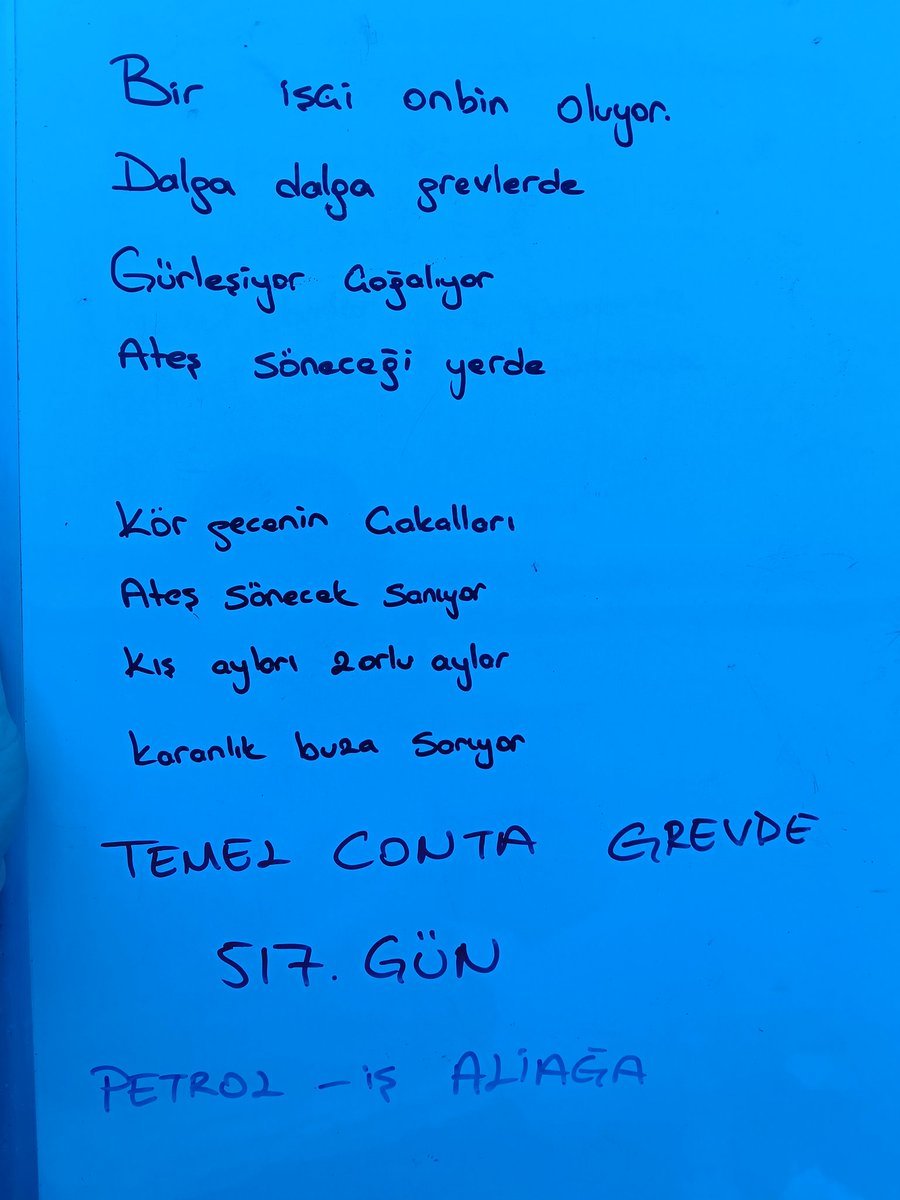 Bir işçi onbin oluyor.
Dalga dalga grevlerde
Gürleşiyor Çoğalıyor
Ateş söneceği yerde
Kör gecenin Çakalları
Ateş sönecek sanıyor
Kış ayları zorlu aylar
Karanlık buza sarıyor
TEMEL CONTA GREVDE
517. GÜN
PETROL - iş ALİAĞA